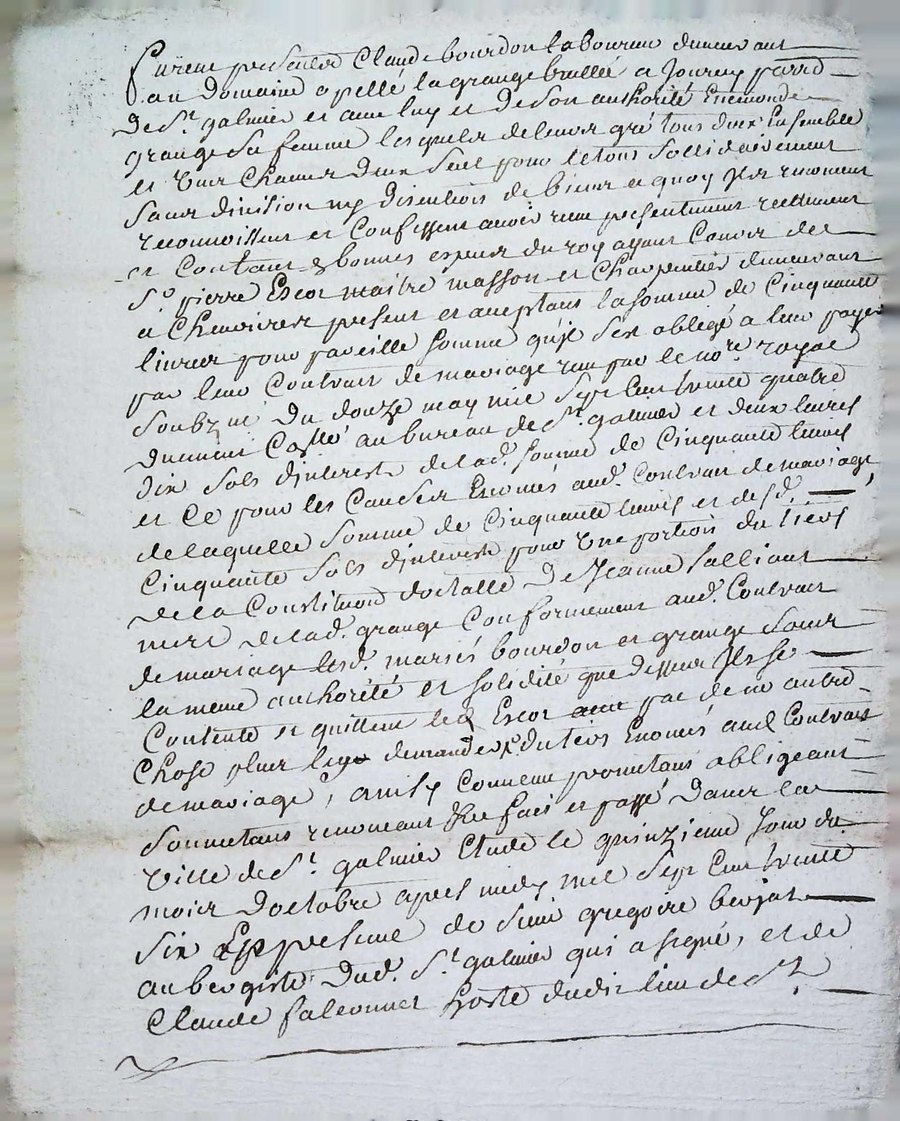 furent presents Claude bourdon laboureur demeurant
au Domaine apellé la grange bruslée a Jourcey parr.e
De S.t galmier et avec luy et de son authorité Enemonde
grange sa femme lesquels de leurs gré tous deux Ensemble
et l'un Chacun d'eux seul pour le tous sollidairement
sans division ny discution de biens a quoy Ils renoncent
reconnoissent et Confessent avoir receu presentement reellement
et Contant es bonnes especes du roy ayant Cours de
S.r pierre Escot maitre masson et Charpentier demeurant
a Chevrieres present et aceptant la somme de Cinquante
livres pour pareille somme qu'il s'est obligé a leur payer
par leur Contract de mariage receu par le no.re royal
soubz.né du douze may mil sept Cent trente quatre
duement Coñllé au bureau de S.t galmier et deux livres
dix sols d'interest de lad. somme de Cinquante livres
et Ce pour les Causes Enoncés aud. Contract de mariage
de laquelle somme de Cinquante livres et desd.
Cinquante sols d'interest pour Une portion du tiers
de la Constitution doctalle De Jeanne
mere de lad. grange Conformement aud. Contract
de mariage lesd. mariés bourdon et grange sous
la meme authorité et solidité que dessus Ils se
Contente et quittent led Escot par de ne autre
Chose plus luy demander du tiers Enoncés aud Contract
de mariage, ainsy Convenu promettans obligeant
soumettans renonceant fait et passé Dans la
Ville de S.t galmier Etude le quinzieme Jour du
mois d'octobre apres midy mil sept Cent trente
six En presence de sieur gregoire berjat
aubergiste dud. S.t galmier qui a signé, et de
Claude falconnet hoste dudit lieu de S.t